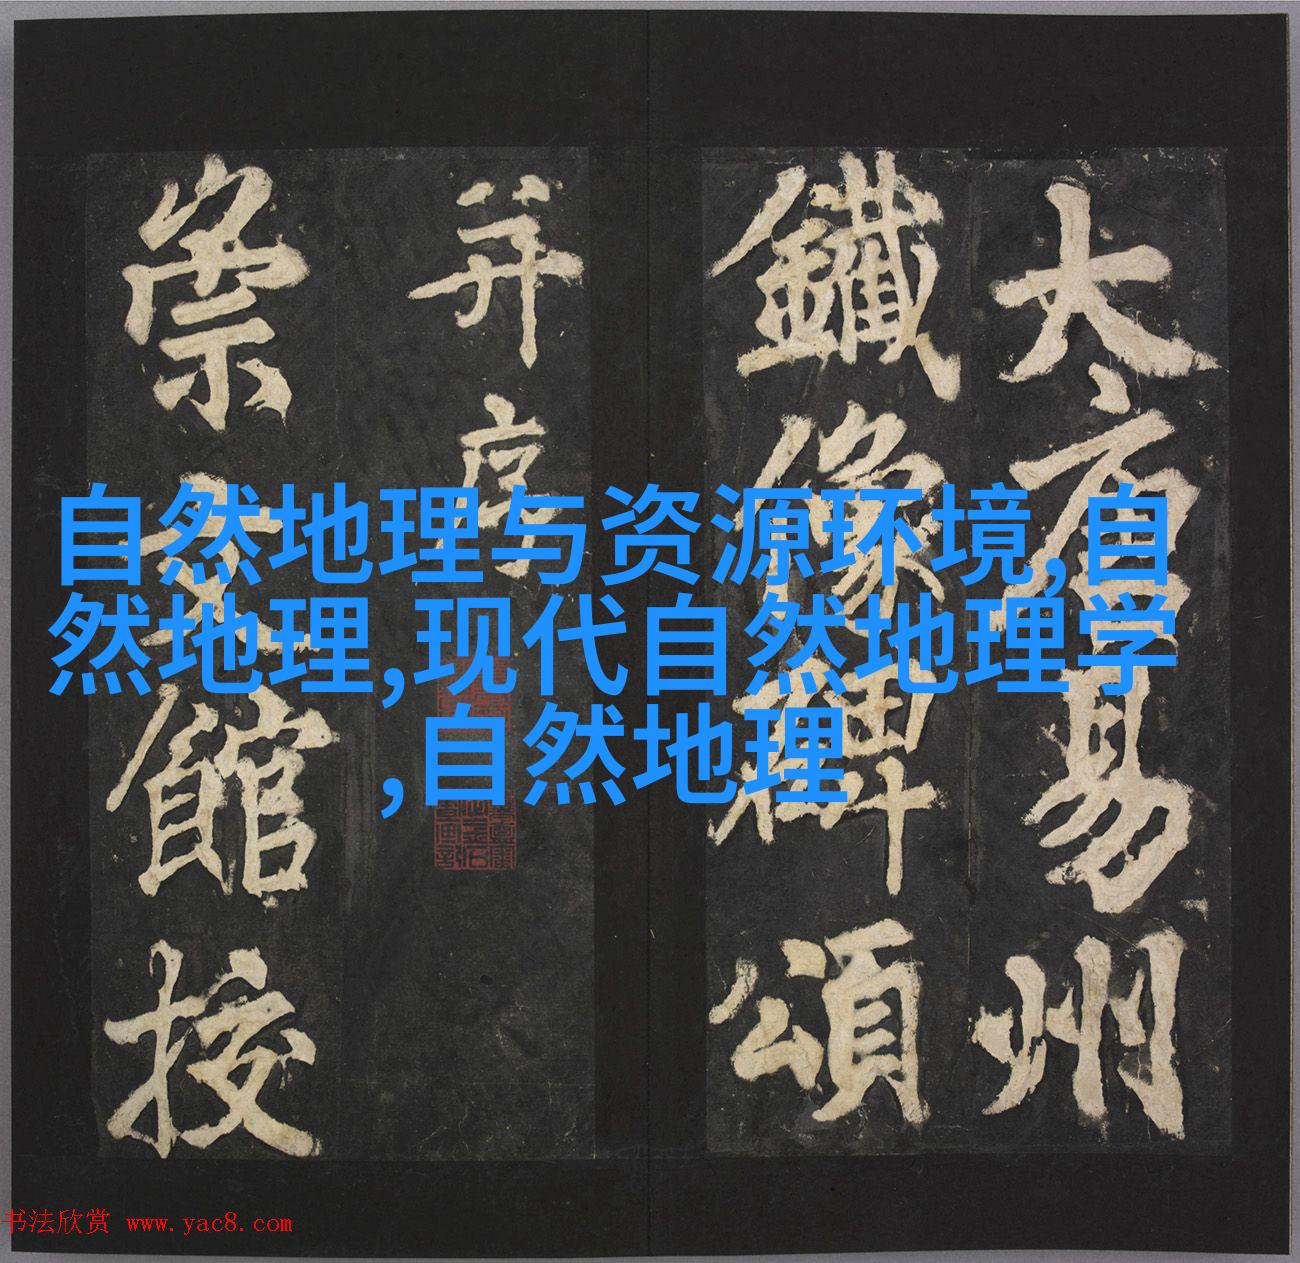 大唐易州
鐵像碑頌
并序
崇文館校
自然地理与资源环境,自
然地理,现代自然地理学
,自然地理
书法欣赏 www.yac8.com